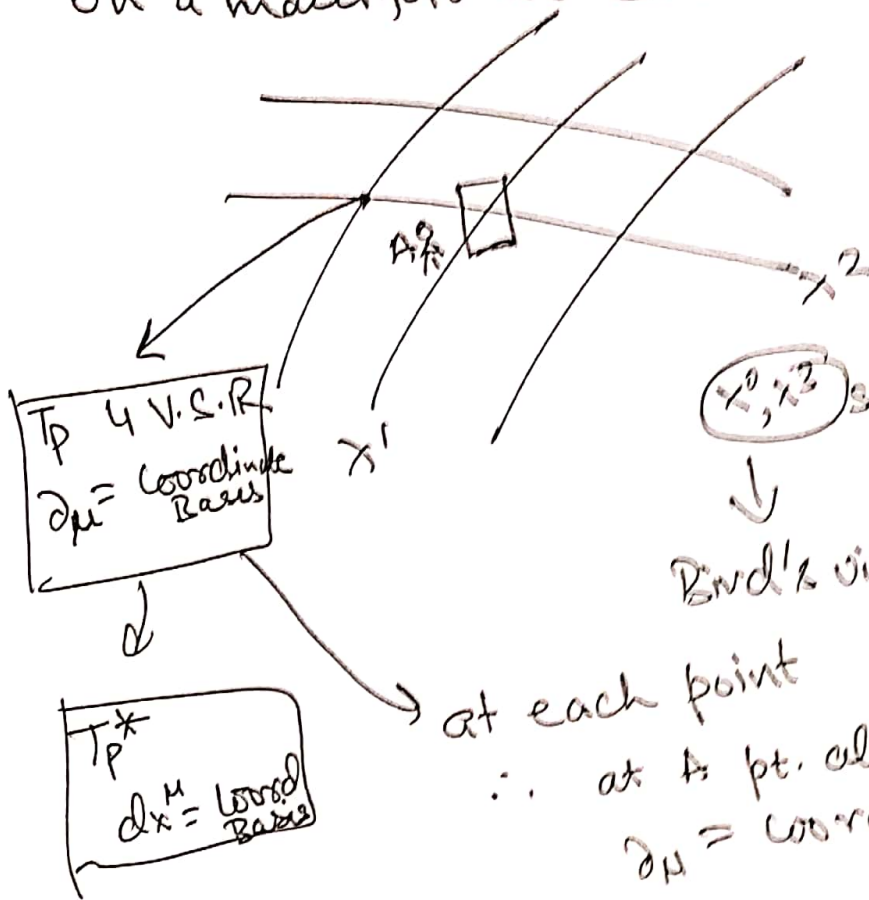 on a
x²
A
x¹
Tp 4 V.S.R
∂μ = Coordinate
Basis
x¹, x²
Bird's vi
at each point
∴ at A pt. al
∂μ = coor
Tp*
dxᵘ = Coord
Basis